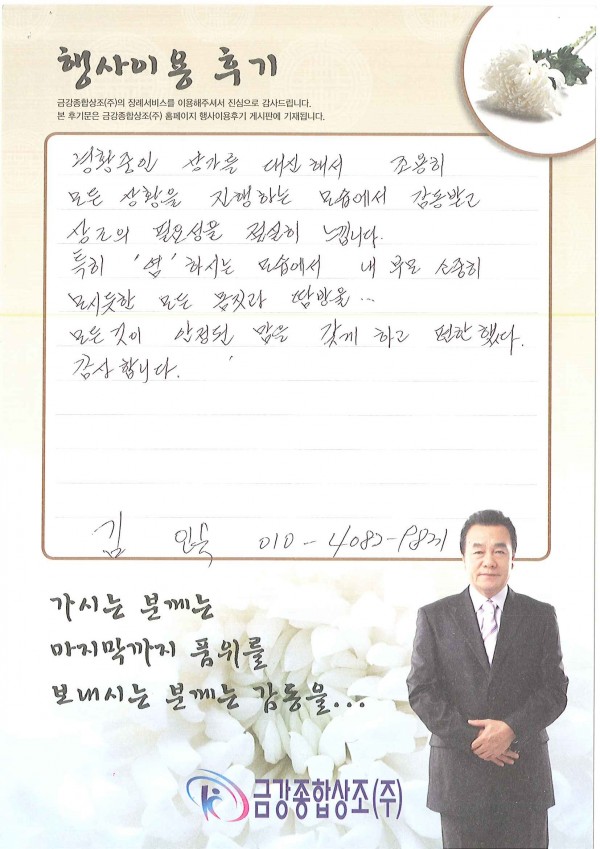 행사이용 후기
금강종합상조(주)의 장례서비스를 이용해주셔서 진심으로 감사드립니다.
본 후기문은 금강종합상조(주) 홈페이지 행사이용후기 게시판에 기재됩니다.
경황중인 상가를 대신해서 조용히
모든 상황을 진행하는 모습에서 감동받고
상조의 필요성을 절실히 느낍니다.
특히 '염' 하시는 모습에서 내 부모 소중히
모시듯한 모든 몸짓과 땀방울...
모든것이 안정된 맘을 갖게 하고 편한했다.
감상합니다.
김 010-4082-
가시는 분께는
마지막까지 품위를
보내시는 분께는 감동을...
금강종합상조(주)